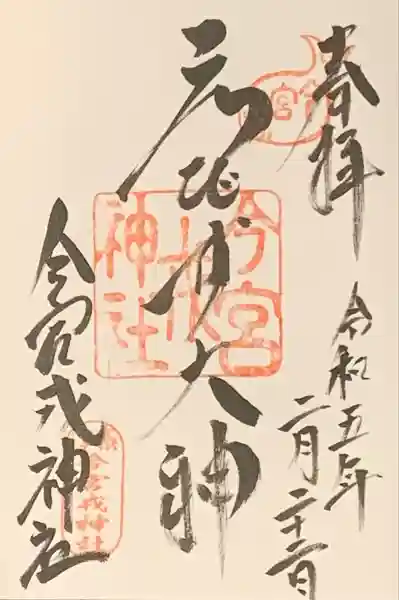 奉拝
令和五年
二月二十
大神
今宮戎神社
今宮戎神社
今宮戎神社